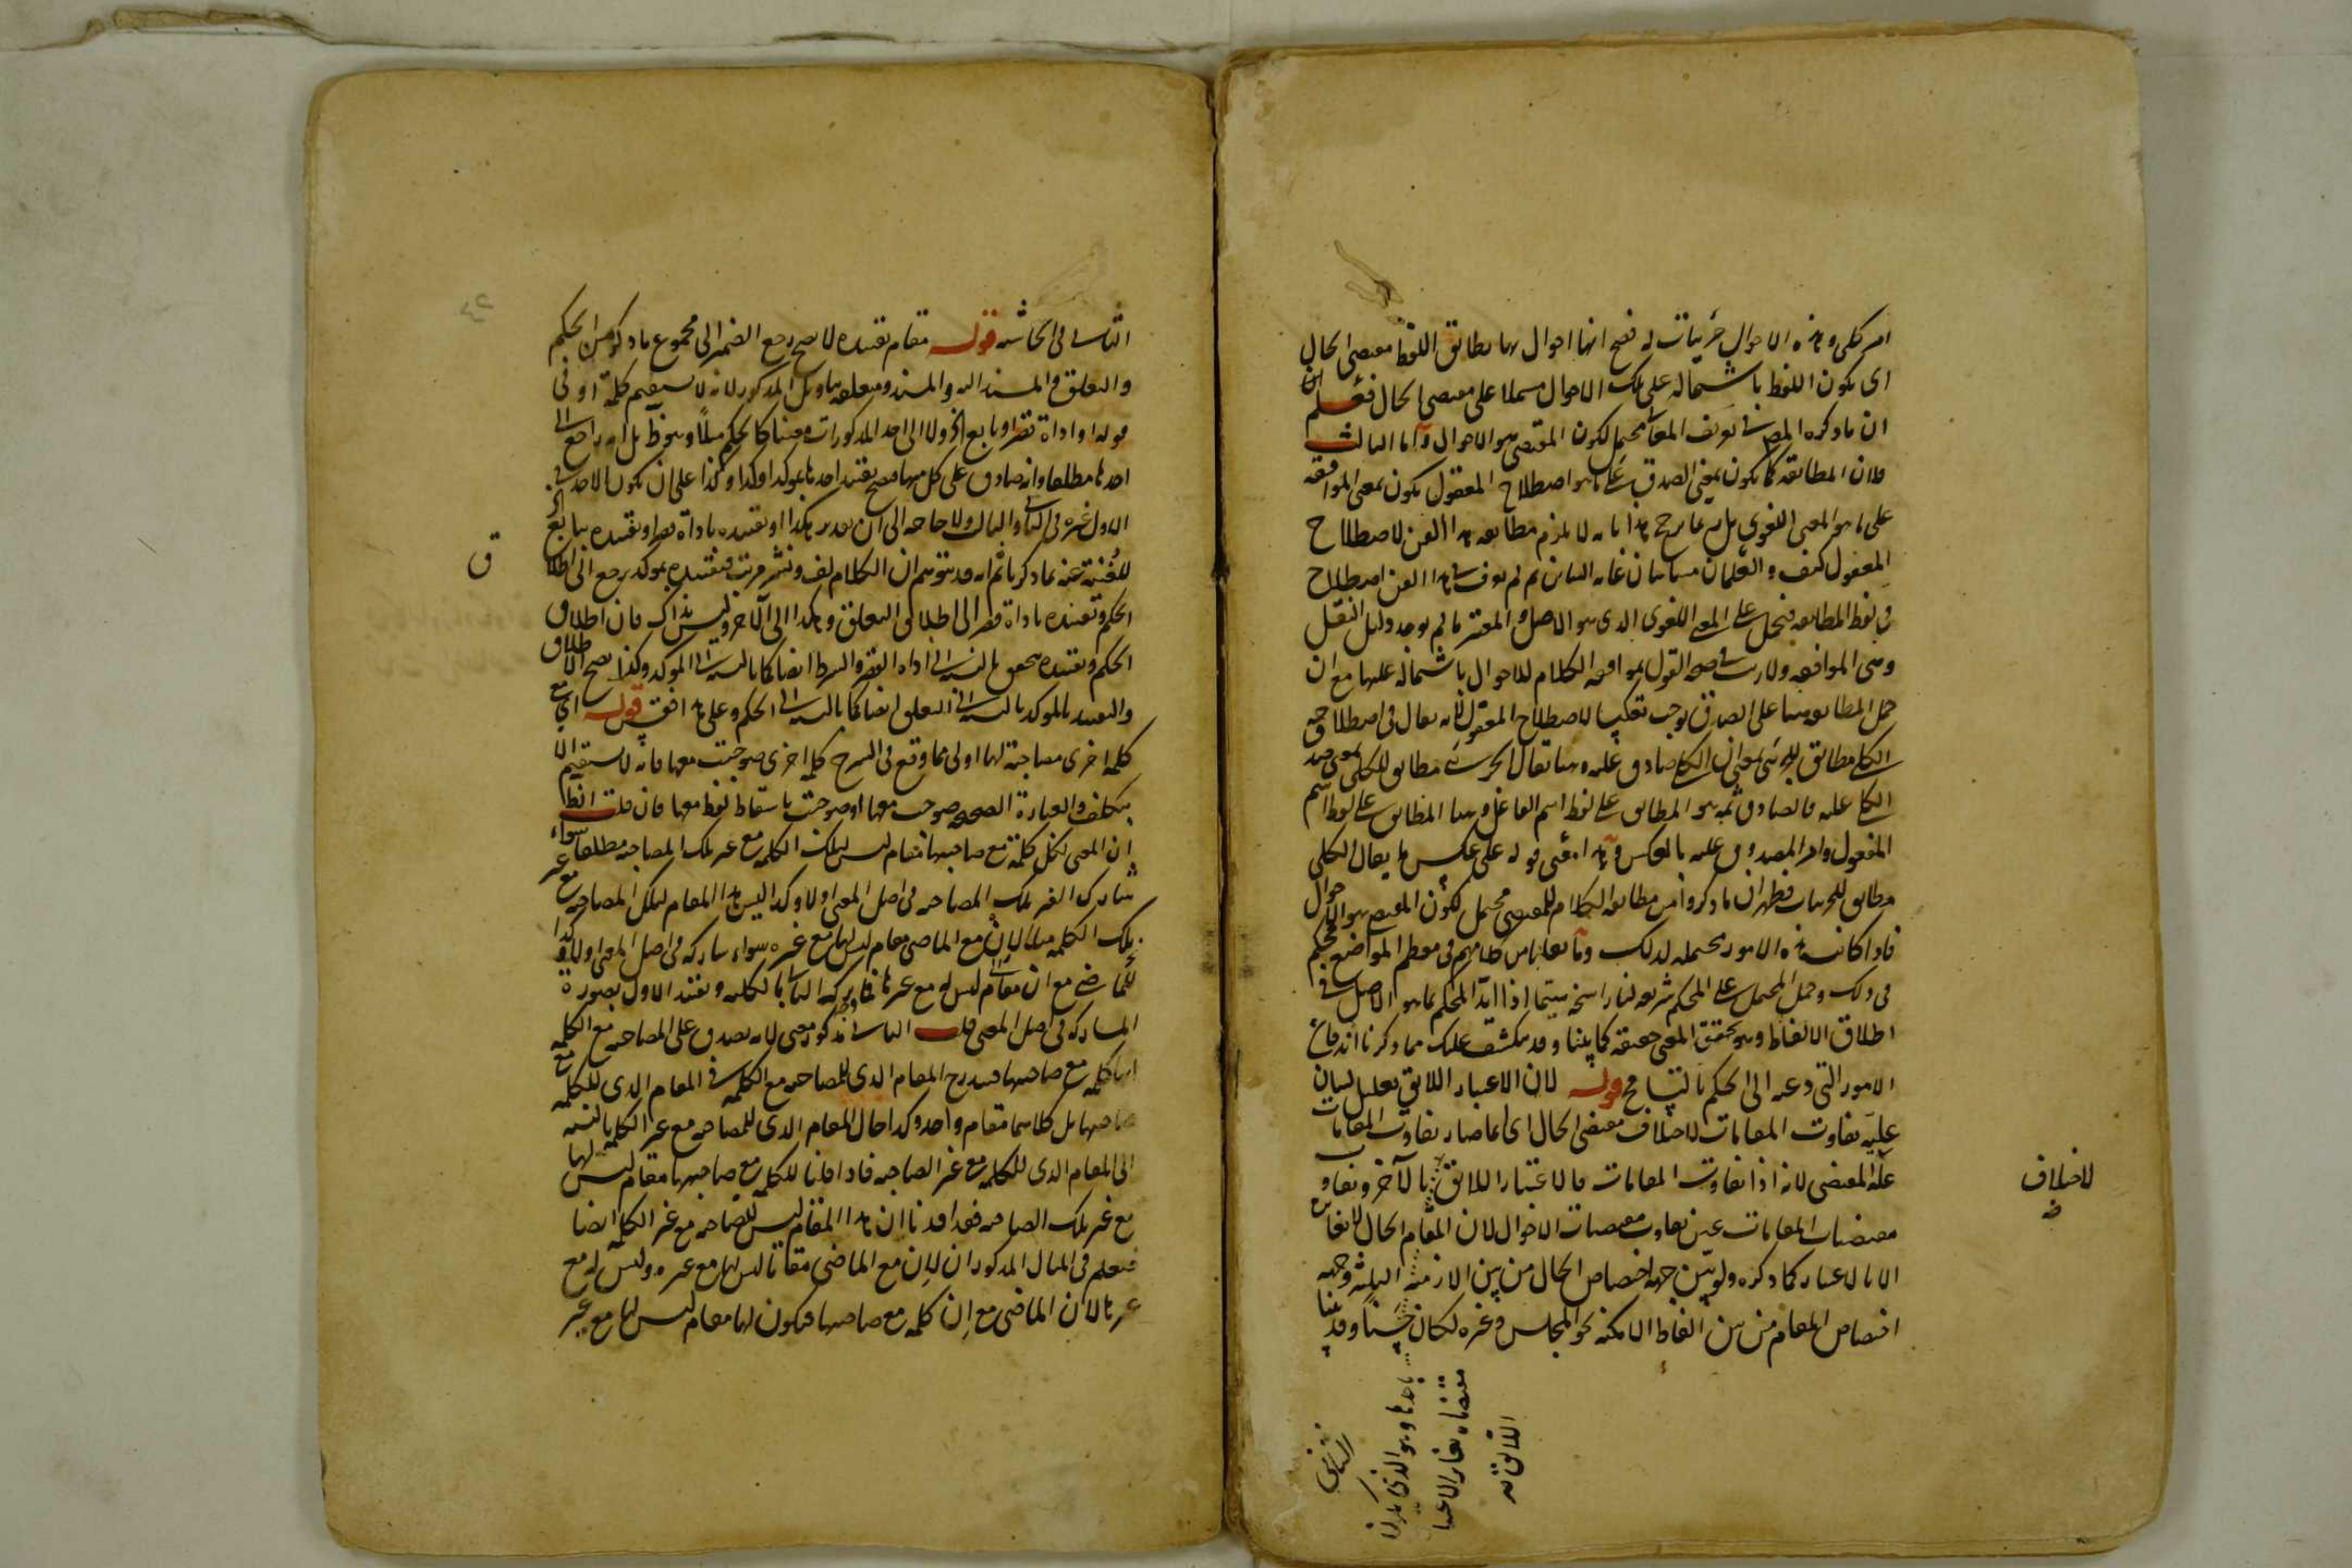 امر كلى وهذه الاحوال جزئيات له فصح انها احوال بها يطابق اللفظ مقتضى الحال
اى يكون اللفظ باشتماله على تلك الاحوال مشتملا على مقتضى الحال فعلم
ان ما ذكره المص فى تعريف المعانى محتمل لكون المقتضى هو الاحوال واما الثالث
فلان المطابقة كما يكون بمعنى الصدق على ما هو اصطلاح المعقول يكون بمعنى الموافقة
على ما هو المعنى اللغوى بل ربما يرجح هذا بانه لا يلزم مطابقة هذا الفن لاصطلاح
المعقول كيف والعلمان متباينان غاية التباين ثم لم يعرف فى هذا الفن اصطلاح
فى لفظ المطابقة فيحمل على المعنى اللغوى الذى هو الاصل والمعتبر ما لم يوجد دليل النقل
وهى الموافقة ولا ريب فى صحة القول بموافقة الكلام للاحوال باشتماله عليها مع ان
حمل المطابقة هنا على الصدق يوجب تعكيسا لاصطلاح المعقول لانه يقال فى اصطلاحه
الكلى مطابق للجزئى بمعنى ان الكلى صادق عليه وهنا يقال الجزئى مطابق للكلى بمعنى صدق
الكلى عليه فالصادق ثمه هو المطابق على لفظ اسم الفاعل وهنا المطابق على لفظ اسم
المفعول وامر المصدوق عليه بالعكس وهذا معنى قوله على عكس ما يقال الكلى
مطابق للجزئيات فظهر ان ما ذكروا من مطابقة الكلام للمقتضى محتمل لكون المقتضى هو الاحوال
فاذا كانت هذه الامور محتملة لذلك وما نقلنا من كلامهم فى معظم المواضع محكم
فى ذلك وحمل المحتمل على المحكم شريعة لنا راسخة سيما اذا ايد المحكم بما هو الاصل فى
اطلاق الالفاظ وهو تحقق المعنى حقيقة كما بينا وقد ينكشف عليك مما ذكرنا اندفاع
الامور التى دعته الى الحكم بالتسامح قوله لان الاعتبار اللائق تعليل لبيان
علية تفاوت المقامات لاختلاف مقتضى الحال اى انما صار تفاوت المقامات
علة لمقتضى لانه اذا تفاوت المقامات فالاعتبار اللائق بالآخر وتفاوت
مقتضيات المقامات عين تفاوت مقتضيات الاحوال لان المقام الحال لا تغاير
الا بالاعتبار كما ذكره ولو بين جهة اختصاص الحال من بين الازمنة الثلثة وجهة
اختصاص المقام من بين الفاظ الامكنة نحو المجلس وغيره لكان حسنا وقد بينا
لاختلاف
صح
الثانى فى الحاشية قوله مقام تقييده لا يصح رجع الضمير الى مجموع ما ذكر من الحكم
والتعلق والمسند اليه والمسند ومتعلقه بتاويل المذكور لانه لا يستقيم كلمة او فى
قوله او اداة قصر او تابع الخ ولا الى احد المذكورات معينا كالحكم مثلا وهو ظ بل انه راجع الى
احدها مطلقا وانه صادق على كل منها فصح تقييد احدها بمؤكد او كذا وكذا على ان يكون الاحد فى
الاول غيره فى الثانى والثالث ولا حاجة الى ان يقدر هكذا او تقييده باداة قصر او تقييده بتابع
للغنية عنه بما ذكرنا ثم انه قد يتوهم ان الكلام لف ونشر مرتب فتقييده بمؤكد يرجع الى اطلاق
الحكم وتقييده باداة قصر الى اطلاق التعلق وهكذا الى الآخر وليس بذاك فان اطلاق
الحكم وتقييده يتحقق بالنسبة الى اداة القصر والشرط ايضا كما بالنسبة الى المؤكد وكذا يصح الاطلاق
والتقييد بالمؤكد بالنسبة الى التعلق ايضا كما بالنسبة الى الحكم وعلى هذا فقس قوله اى مع
كلمة اخرى مصاحبة لها اولى مما وقع فى الشرح كلمة اخرى صوحبت معها فانه لا يستقيم الا
بتكلف والعبارة الصحيحة صوحبت بها او صوحبت باسقاط لفظ معها فان قلت انظر
ان المعنى لكل كلمة مع صاحبتها مقام ليس لتلك الكلمة مع غير تلك المصاحبة مطلقا سواء
شارك الغير تلك المصاحبة فى اصل المعنى اولا وكذا ليس هذا المقام لتلك المصاحبة مع غير
تلك الكلمة مثلا لان مع الماضى مقام ليس لها مع غيره سواء شاركه فى اصل المعنى اولا وكذا
للماضى مع ان مقام ليس له مع غيرها فلم يترك الثانى بالكلية وتقييد الاول بصورة
المشاركة فى اصل المعنى قلت الثانى مذكور معنى لانه يصدق على المصاحبة مع الكلمة
انها كلمة مع صاحبتها فيندرج المقام الذى للمصاحبة مع الكلمة فى المقام الذى للكلمة مع
صاحبتها بل كلاهما مقام واحد وكذا حال المقام الذى للمصاحبة مع غير الكلمة بالنسبة
الى المقام الذى للكلمة مع غير الصاحبة فاذا قلنا للكلمة مع صاحبتها مقام ليس لها
مع غير تلك الصاحبة فقد افدنا ان هذا المقام ليس للصاحبة مع غير الكلمة ايضا
فيعلم فى المثال المذكور ان لان مع الماضى مقاما ليس لها مع غيره وليس له مع
غيرها لان الماضى مع ان كلمة مع صاحبتها فيكون لها مقام ليس لها مع غير
ق